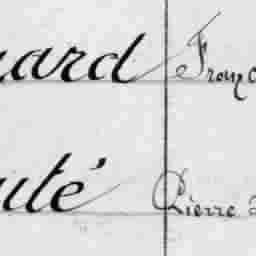 nard Franço
uté Pierre